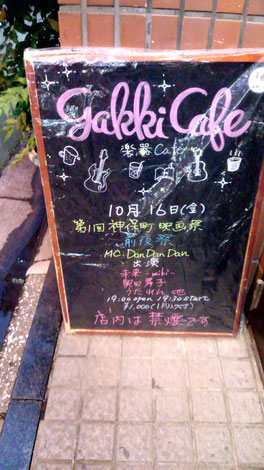 gakki Cafe
楽器 Cafe
10月16日(金)
第1回 神保町 映画祭
前夜祭
MC: Dan Dan Dan
出演
未来-miki-
うたれん 他
19:00 open 19:30 start
¥1,000(1ドリンクつき)
店内は禁煙です